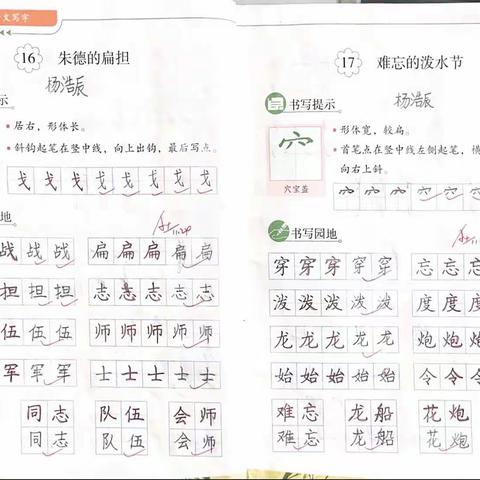 文写字
16 朱德的扁担
杨浩辰
示
• 居右，形体长。
• 斜钩起笔在竖中线，向上出钩，最后写点。
戈 戈 戈 戈 戈 戈 戈 戈
地
战 战 战 扁 扁 扁 扁 扁
担 担 担 志 志 志 志 志
伍 伍 伍 师 师 师 师 师
军 军 军 士 士 士 士 士
同 志 队 伍 会 师
同 志 队 伍 会 师
17 难忘的泼水节
杨浩辰
书写提示
穴宝盖
• 形体宽，较扁。
• 首笔点在竖中线左侧起笔，横
向右上斜。
书写园地
穿 穿 穿 穿 穿 忘 忘 忘
泼 泼 泼 泼 泼 度 度 度
龙 龙 龙 龙 龙 炮 炮 炮
始 始 始 始 始 令 令 令
难 忘 龙 船 花 炮
难 忘 龙 船 花 炮